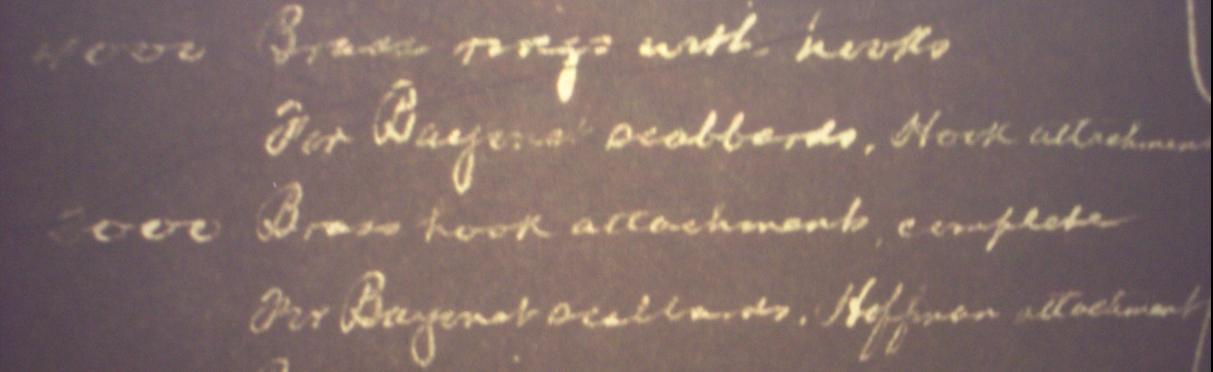 4000 Brass rings with hooks
For Bayonet scabbards, Hook attachment
2000 Brass hook attachments, complete
For Bayonet scabbards, Hoffman attachment